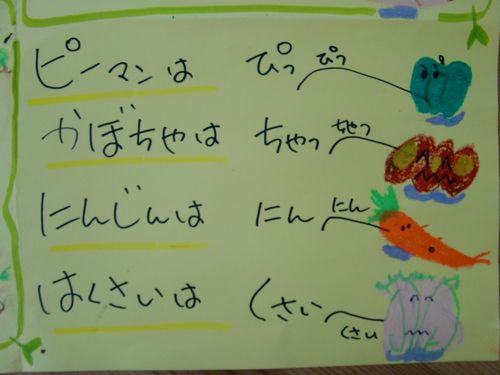 ピーマンは ぴっ ぴっ
かぼちゃは ちゃっ ちゃっ
にんじんは にん にん
はくさいは くさい くさい